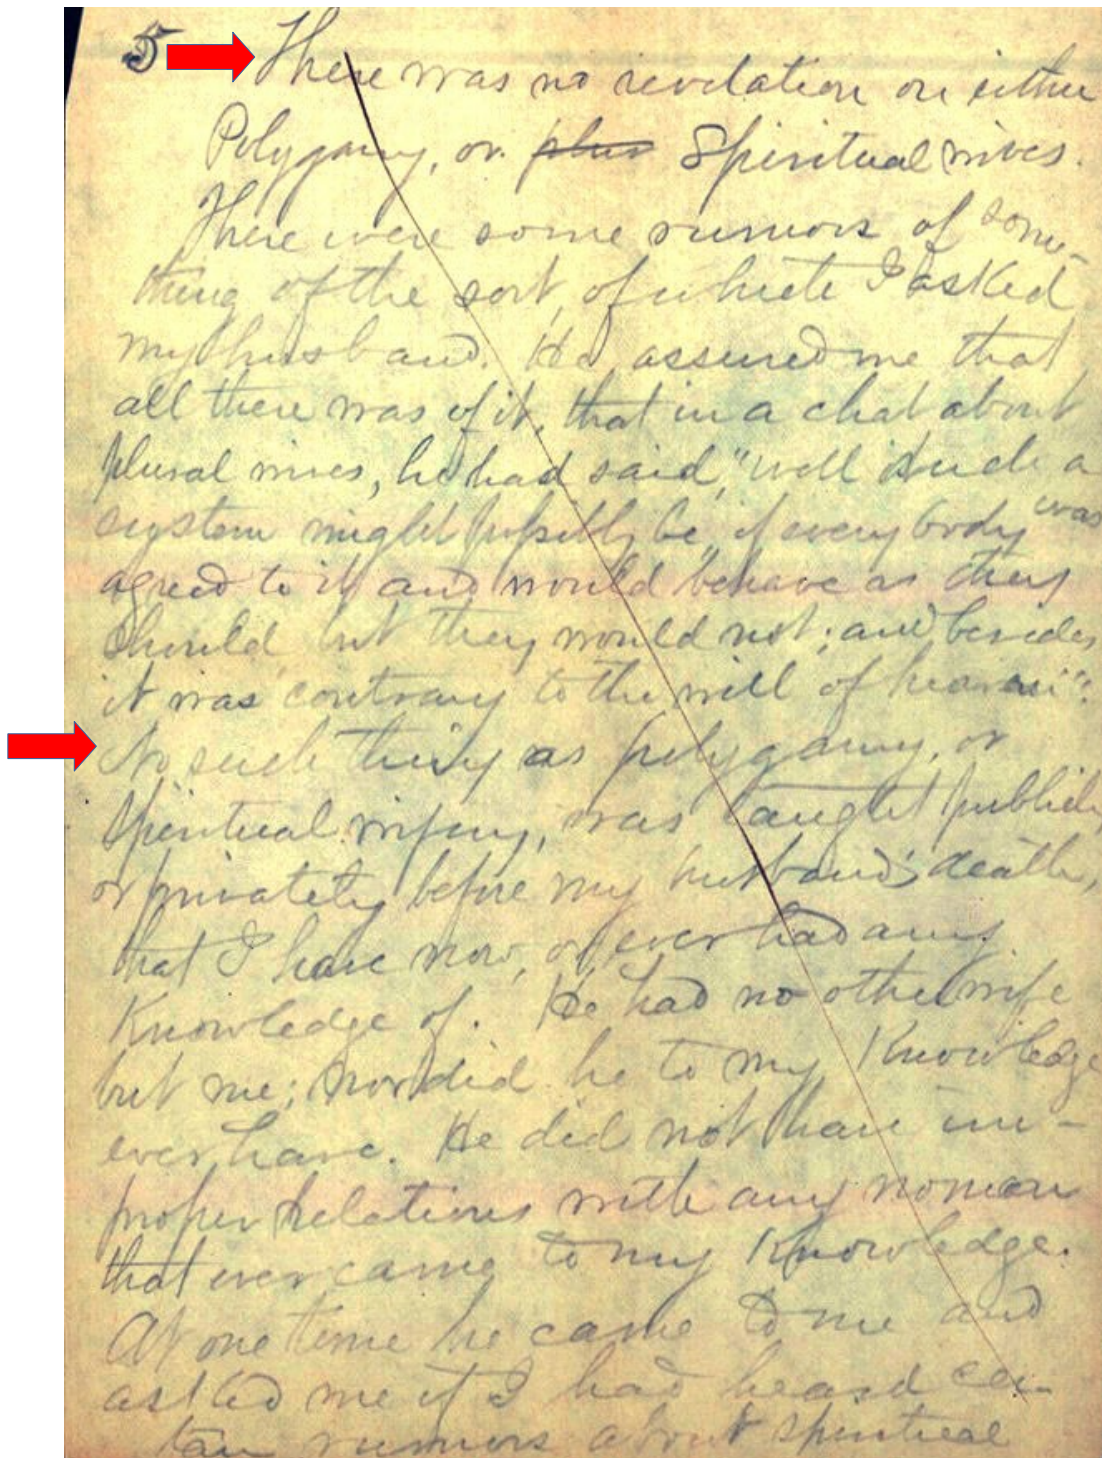 5 There was no revelation on either
Polygamy, or plur Spiritual wives.
There were some rumors of some-
thing of the sort, of which I asked
my husband. He assured me that
all there was of it, that in a chat about
plural wives, he had said, "well such a
system might possibly be, if every body was
agreed to it and would behave as they
should but they would not; and besides
it was contrary to the will of heaven":
No such thing as polygamy, or
Spiritual wifery, was taught publicly
or privately before my husband's death,
that I have now, or ever had any
Knowledge of. He had no other wife
but me; nor did he to my Knowledge
ever have. He did not have im-
proper relations with any woman
that ever came to my Knowledge.
At one time he came to me and
asked me if I had heard cer-
tain rumors about spiritual